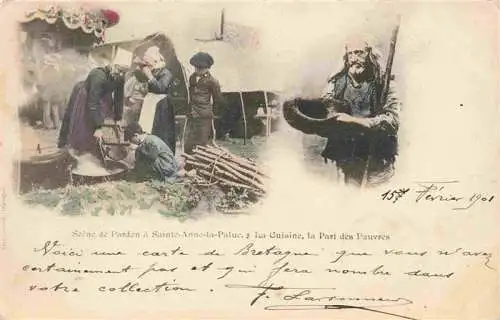 15 Février 1901
Scène de Pardon à Sainte-Anne-la-Palue. La Cuisine, la Part des Pauvres
Voici une carte de Bretagne que vous n'avez
certainement pas et qui fera nombre dans
votre collection.